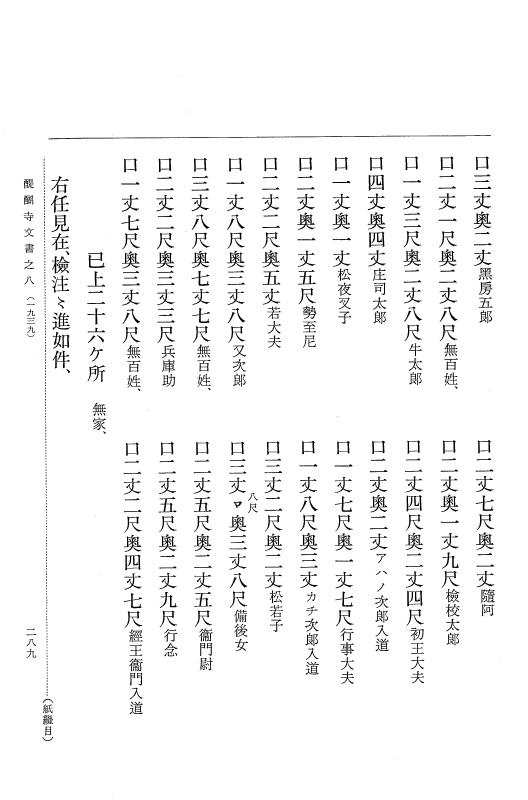 口三丈奧二丈黑房五郞　口二丈七尺奧二丈隨阿
口二丈一尺奧二丈八尺無百姓、　口二丈奧一丈九尺檢校太郞
口一丈三尺奧二丈八尺牛太郞　口二丈四尺奧二丈四尺初王大夫
口四丈奧四丈庄司太郞　口二丈奧二丈アハノ次郞入道
口一丈奧一丈松夜叉子　口一丈七尺奧一丈七尺行事大夫
口二丈奧一丈五尺勢至尼　口一丈八尺奧三丈カチ次郞入道
口二丈二尺奧五丈若大夫　口三丈二尺奧二丈松若子
口一丈八尺奧三丈八尺又次郞　口三丈八尺口奧三丈八尺備後女
口三丈八尺奧七丈七尺無百姓、　口二丈五尺奧二丈五尺衞門尉
口二丈二尺奧三丈三尺兵庫助　口二丈五尺奧二丈九尺行念
口一丈七尺奧三丈八尺無百姓、　口二丈二尺奧四丈七尺經王衞門入道
已上二十六ケ所　無家、
右任見在、檢注〻進如件、
(紙繼目)
醍醐寺文書之八(一九三九)　二八九